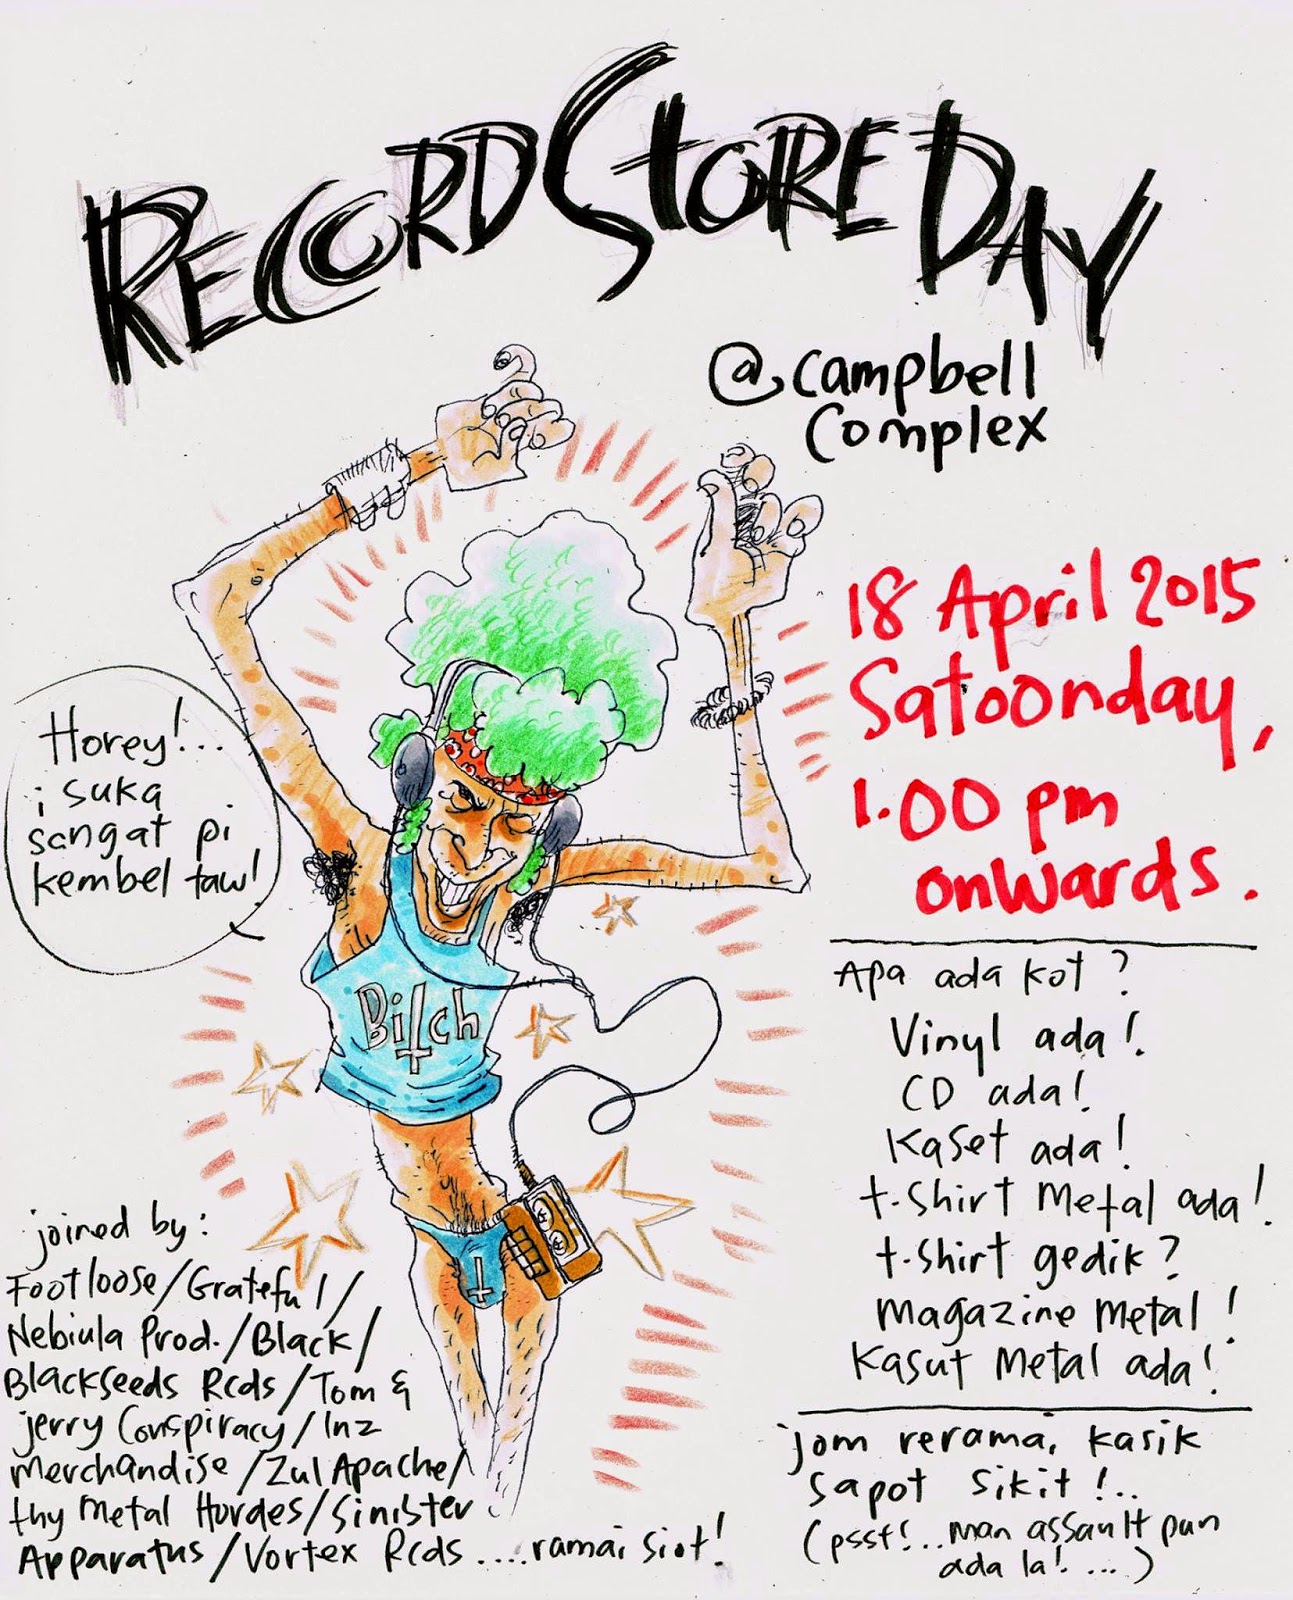 RECORD STORE DAY
@ campbell
complex
18 April 2015
Satoonday,
1.00 pm
onwards.
Horey!...
i suka
sangat pi
kembel taw!
Bitch
Apa ada kot?
Vinyl ada!
CD ada!
Kaset ada!
t-shirt Metal ada!
t-shirt gedik?
Magazine Metal!
Kasut Metal ada!
jom rerama, kasik
sapot sikit!..
(psst!..man assault pun
ada la!....)
joined by:
Footloose/Grateful/
Nebiula Prod./Black/
Blackseeds Rcds/Tom &
jerry Conspiracy/Inz
Merchandise/Zul Apache/
thy Metal Hordes/Sinister
Apparatus/Vortex Rcds....ramai siot!